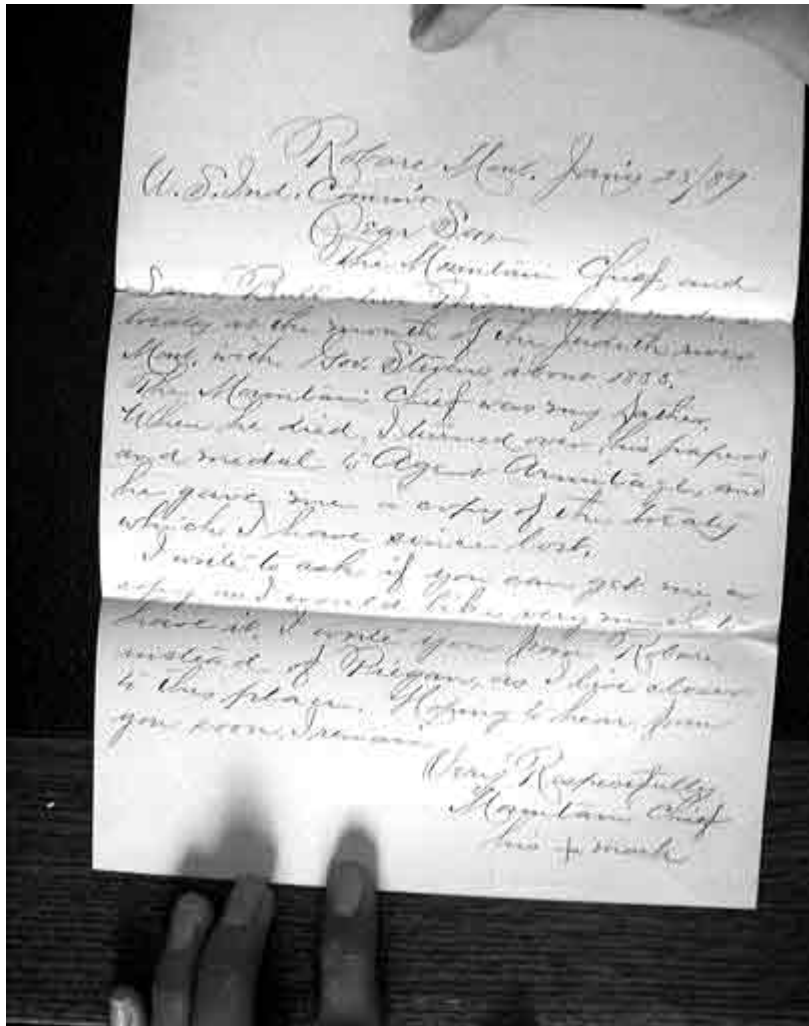 Robare Mont. Jan'y 23/89
U. S. Ind. Comm'r
Dear Sir
The Mountain Chief, and
Lame Bull two Piegan chiefs made a
treaty at the mouth of the Judith river
Mont. with Gov. Stevens, about 1855.
The Mountain Chief was my father.
When he died, I turned over his papers
and medal to Agent Armitage, and
he gave me a copy of the treaty
which I have since lost.
I write to ask if you can get me a
copy and would like very much to
have it. I write you from Robare
instead of Piegan, as I live closer
to this place. Hoping to hear from
you soon, I remain
Very Respectfully
Mountain Chief
his + mark